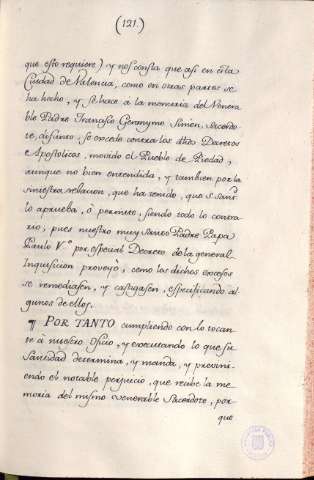 (121.)
que esto requiere) y nos consta que asi en esta
Ciudad de Valencia, como en otras partes se
ha hecho, y se hace a la memoria del Venera
ble Padre Francisco Geronymo Simon, Sacerdo
te, difunto, se excede contra los dhos Decretos
e Apostolicos, movido el Pueblo de Piedad,
aunque no bien entendida, y tambien por la
siniestra relacion, que ha tenido, que S. Santd.
lo aprueba, ò permite, siendo todo lo contra
rio, pues nuestro muy Santo Padre Papa
Paulo V.º por especial Decreto de la general
Inquisicion proveyò, como los dichos excesos
se remediasen, y castigasen, especificando al
gunos de ellos.
¶ POR TANTO cumpliendo con lo tocan
te à nuestro Oficio, y executando lo que su
Santidad determina, y manda, y previni
endo el notable perjuicio, que recibe la me
moria del mismo Venerable Sacerdote, por
que